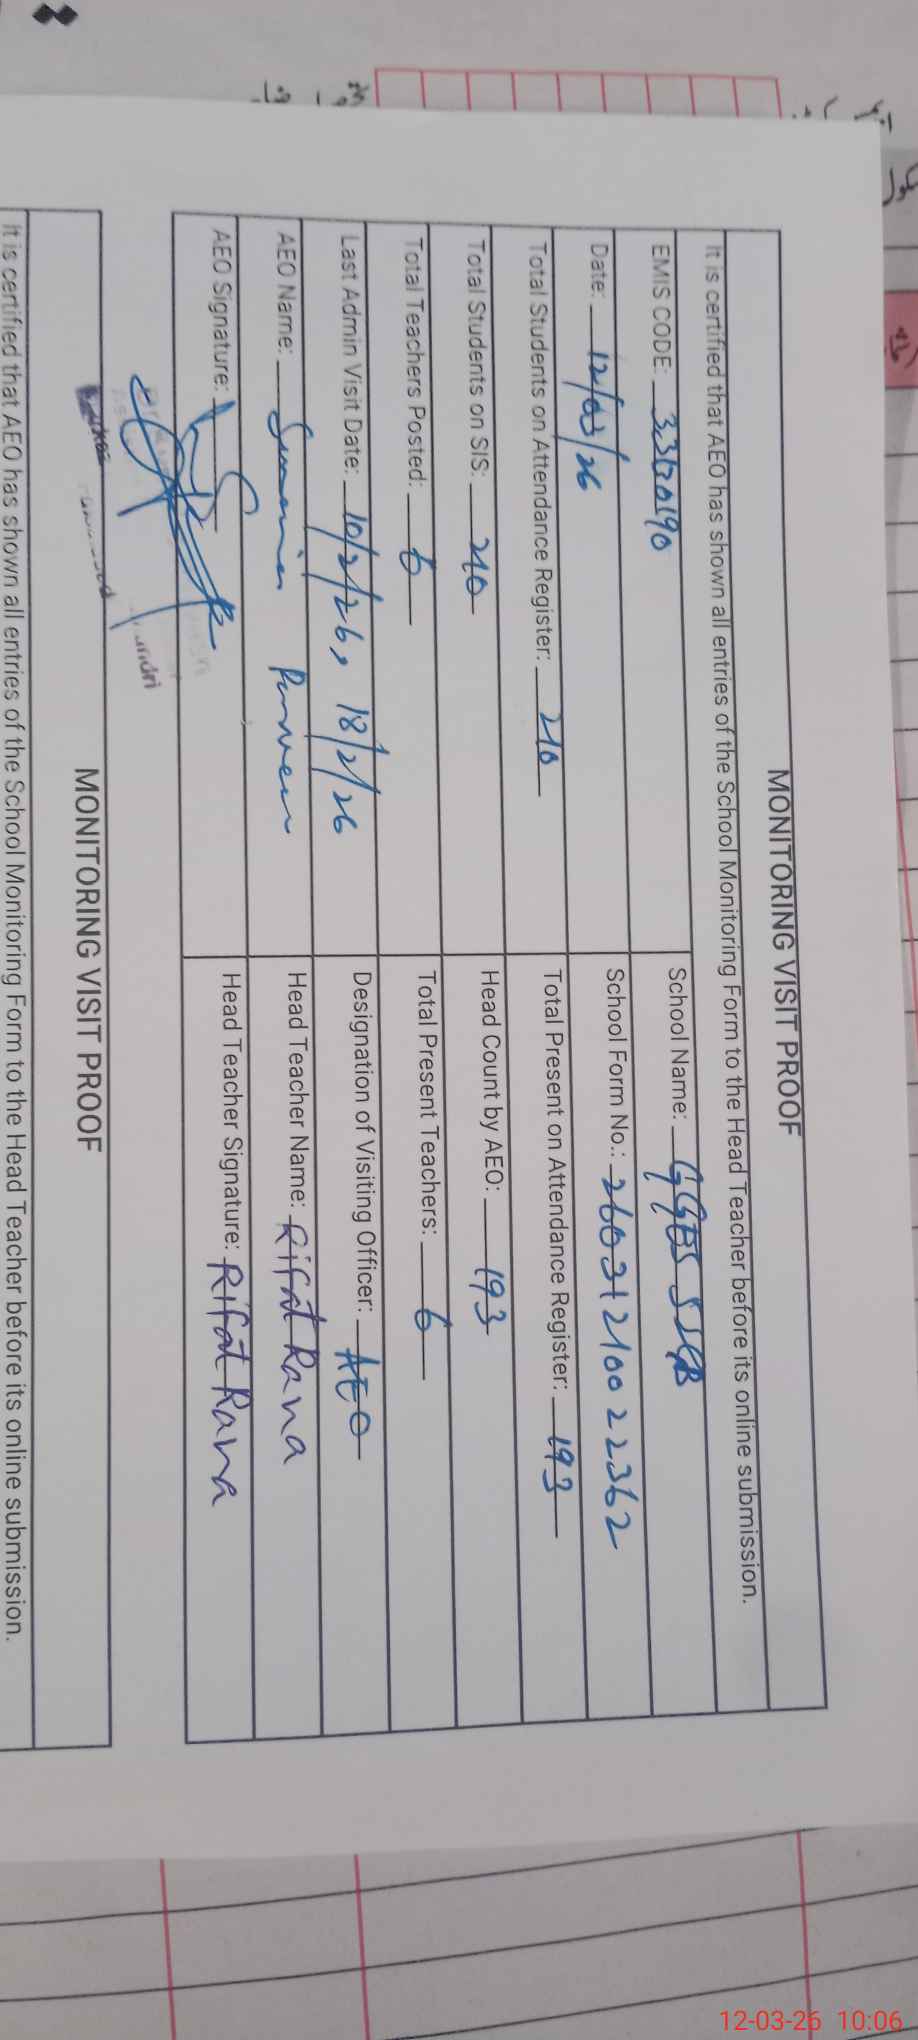 MONITORING VISIT PROOF
It is certified that AEO has shown all entries of the School Monitoring Form to the Head Teacher before its online submission.
EMIS CODE: 33130190 School Name: GGES
Date: 12/03/26 School Form No.: 26031210022362
Total Students on Attendance Register: 210 Total Present on Attendance Register: 193
Total Students on SIS: 210 Head Count by AEO: 193
Total Teachers Posted: 6 Total Present Teachers: 6
Last Admin Visit Date: 10/2/26, 18/2/26 Designation of Visiting Officer: AEO
AEO Name: Parveen Head Teacher Name: Rifat Rana
AEO Signature: Head Teacher Signature: Rifat Rana
MONITORING VISIT PROOF
It is certified that AEO has shown all entries of the School Monitoring Form to the Head Teacher before its online submission.
12-03-26 10:06